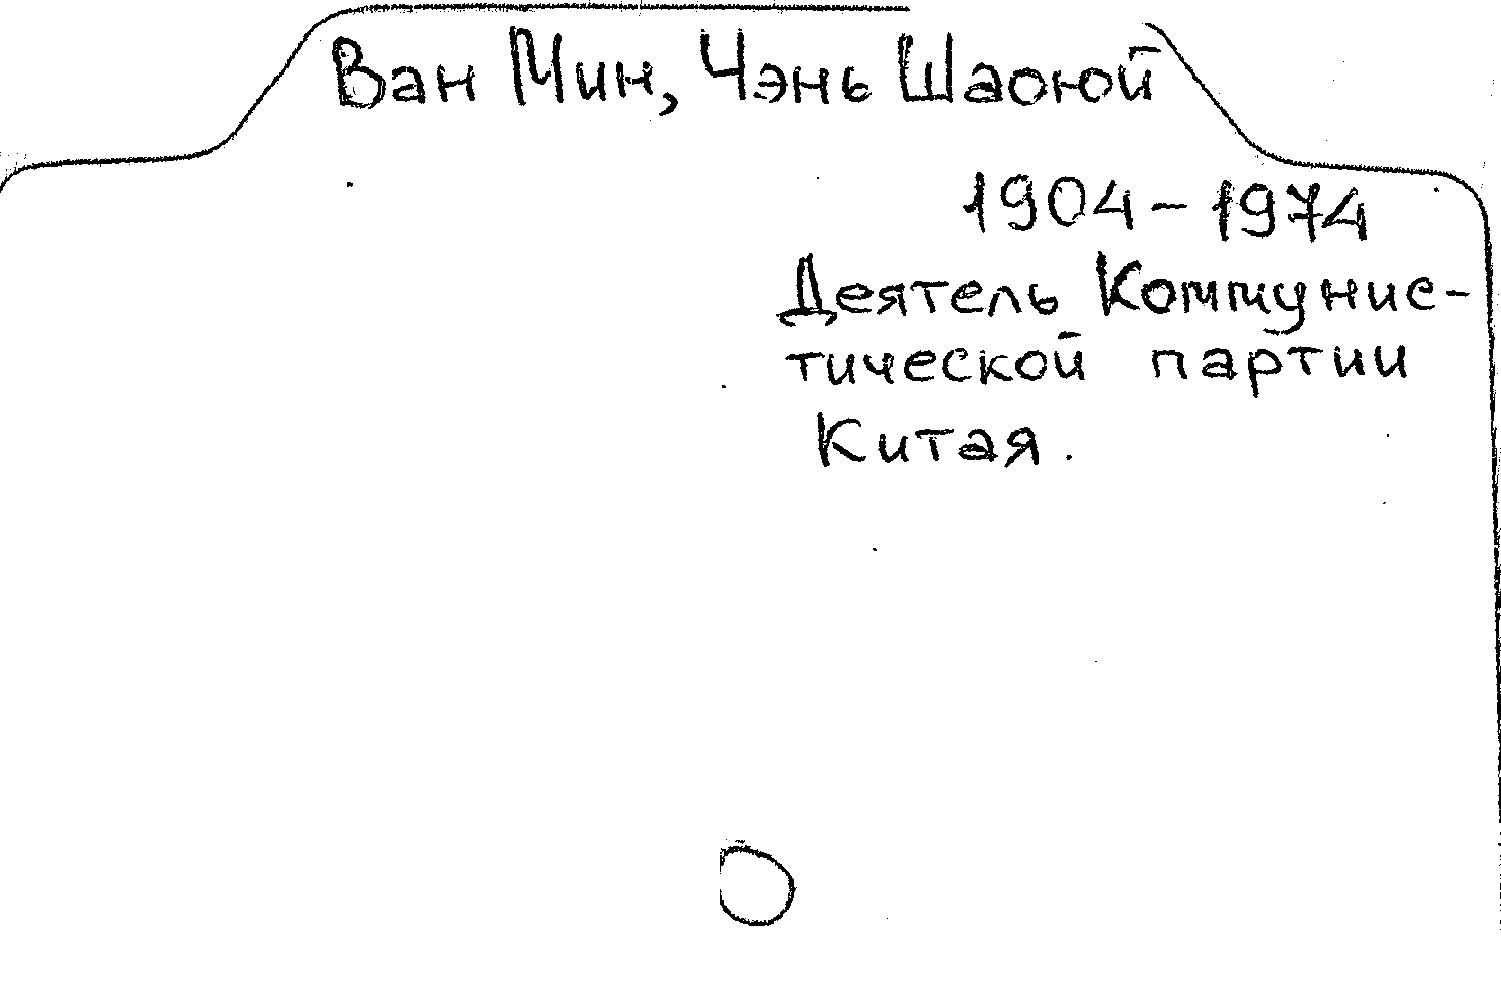 Ван Мин, Чэнь Шаоюй
1904-1974
Деятель Коммунис-
тической партии
Китая.